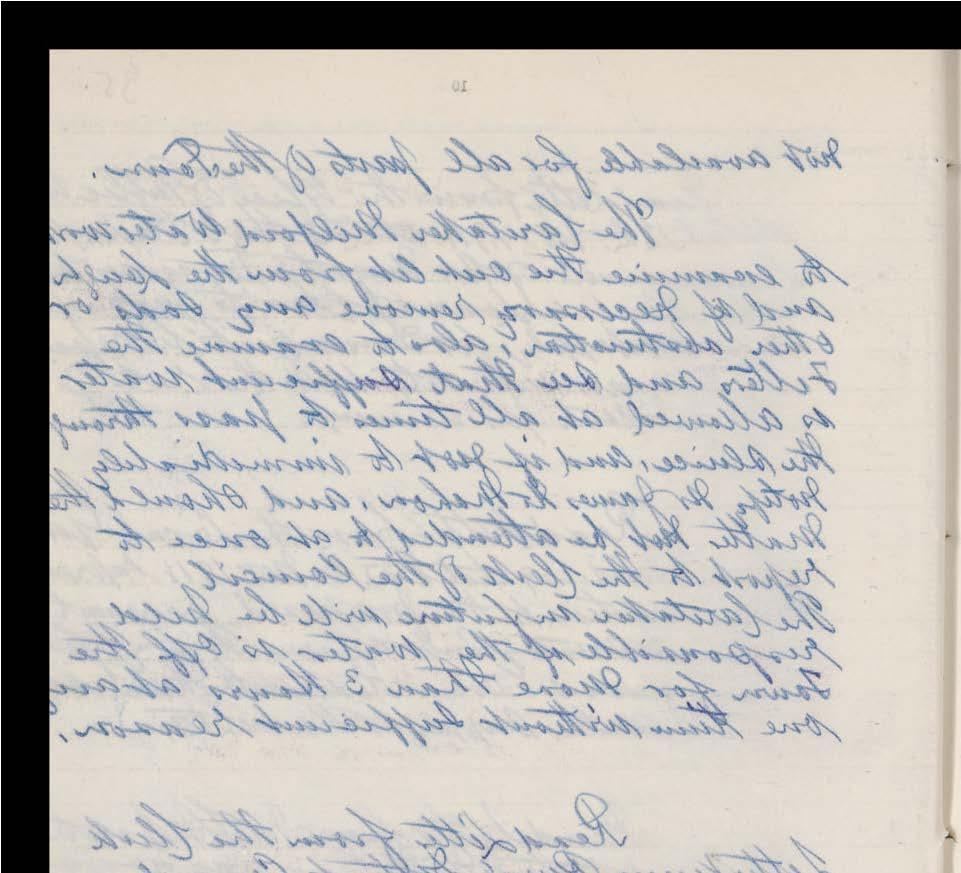 10
not available for all parts of the Town.
The Caretaker Milford Waterworks
to examine the outlet from the Lough
and if necessary remove any sods or
other obstruction, also to examine the
Filters and see that sufficient water
is allowed at all times to pass through
the sluice, and if not to immediately
notify Mr James and should the
matter not be attended to at once to
report to the Clerk of the Council
The Caretaker in future will be held
responsible if the Water is off the
Town for more than 3 hours at any
one time without sufficient reason.
Read letter from the Clerk
Letterkenny Rural